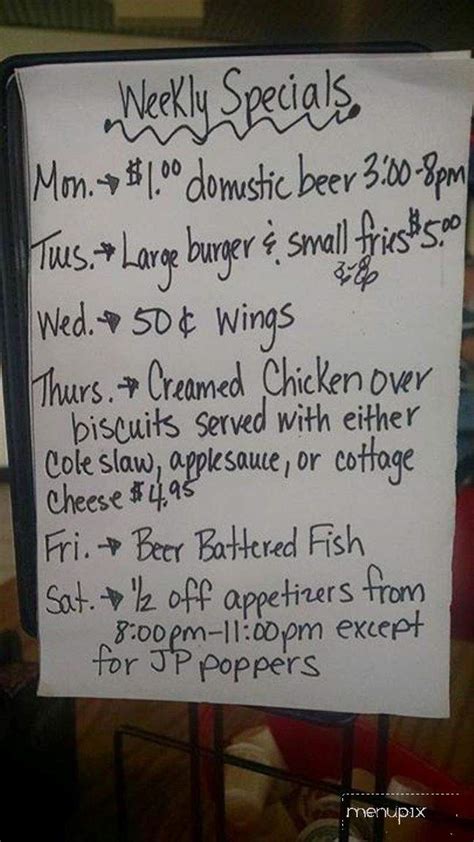 Weekly Specials
Mon. → $1.00 domustic beer 3:00-8pm
Tues. → Large burger & small fries $5.00
3-8p
Wed. → 50¢ Wings
Thurs. → Creamed Chicken over
biscuits served with either
Cole slaw, applesauce, or cottage
Cheese $4.95
Fri. → Beer Battered Fish
Sat. → 1/2 off appetizers from
8:00pm-11:00pm except
for JP poppers
menupix